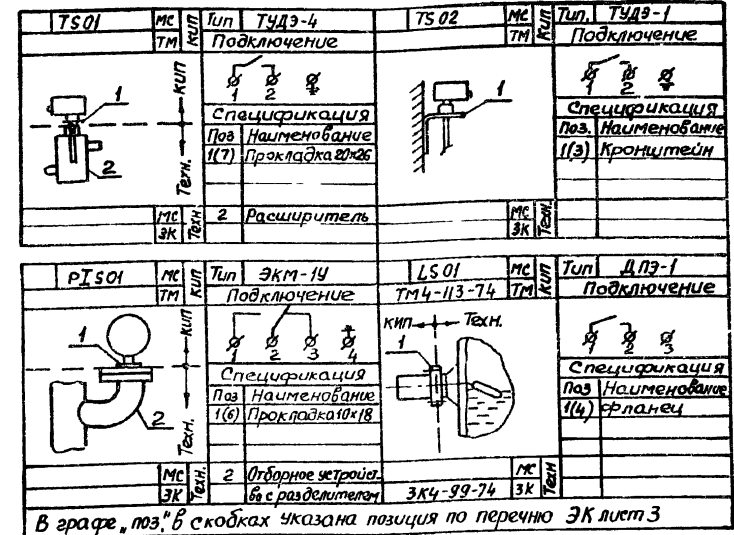 TS01 МС КИП Тип ТУДЭ-4
ТМ Подключение
1 2
Спецификация
Поз Наименование
1(7) Прокладка 20×26
1
2
КИП
Техн.
МС Техн 2 Расширитель
ЗК
TS02 МС КИП Тип. ТУДЭ-1
ТМ Подключение
1 2
Спецификация
Поз. Наименование
1(3) Кронштейн
1
МС Техн.
ЗК
PIS01 МС КИП Тип ЭКМ-1У
ТМ Подключение
1 2 3 4
Спецификация
Поз Наименование
1(6) Прокладка 10×18
1
2
КИП
Техн.
МС Техн. 2 Отборное устройст-
ЗК во с разделителем
LS01 МС КИП Тип ДПЭ-1
ТМ4-113-74 ТМ Подключение
КИП Техн.
1
1 2 3
Спецификация
Поз Наименование
1(4) Фланец
МС Техн.
ЗК4-99-74 ЗК
В графе „поз." в скобках указана позиция по перечню ЭК лист 3